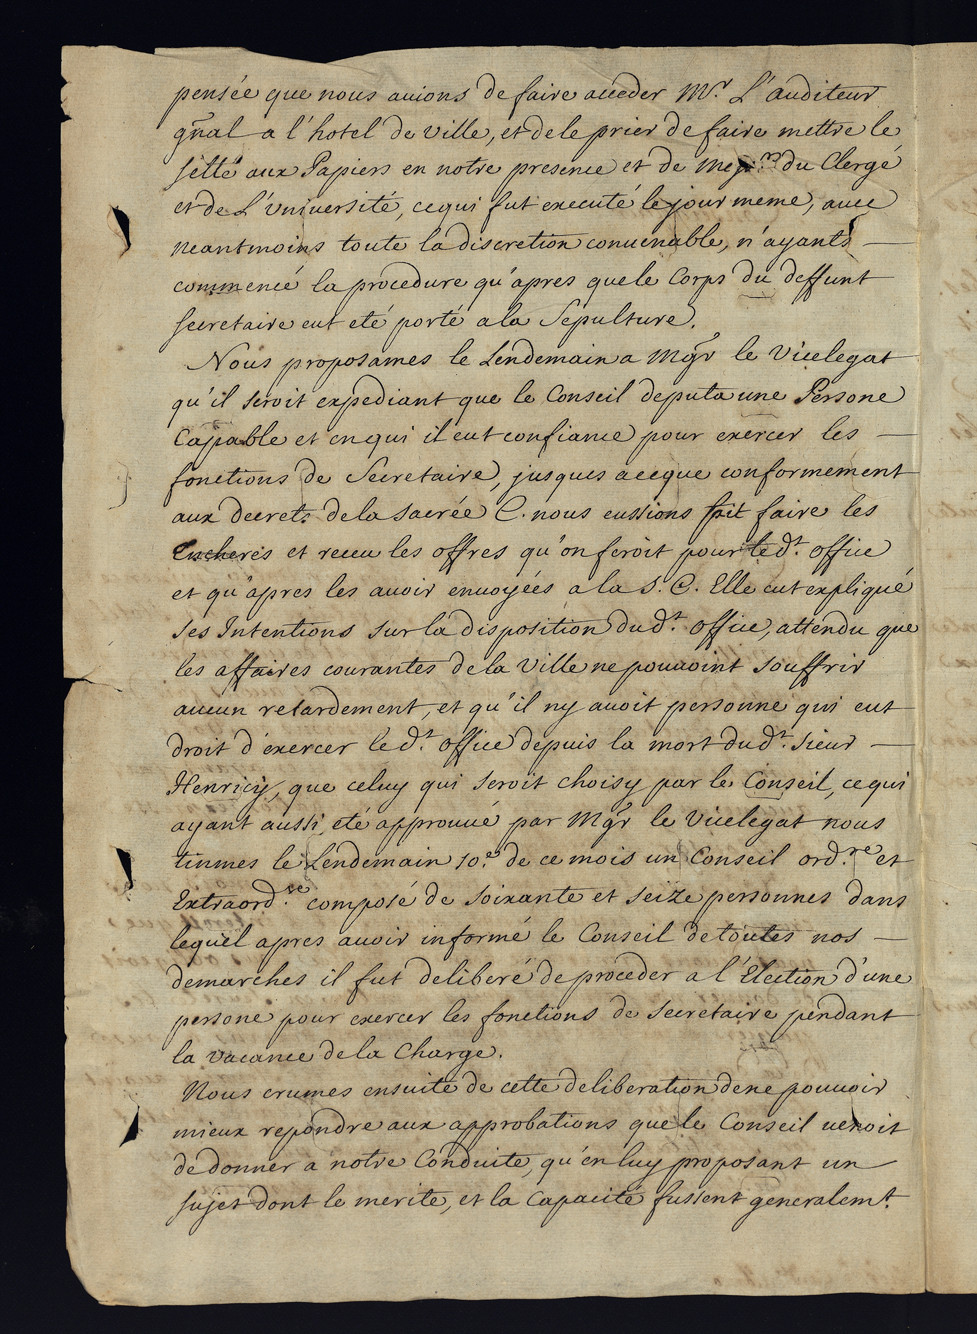 pensée que nous auions de faire acceder Mr. L'auditeur
gñal a l'hotel de ville, et de le prier de faire mettre le
sellé aux Papiers en notre presence et de Messrs. du Clergé
et de L'Vniuersité, ce qui fut executé le jour meme, auec
neantmoins toute la discretion conuenable, n'ayants —
commencé la procedure qu'apres que le Corps du deffunt
secretaire eut eté porté a la Sepulture.
Nous proposames le Lendemain a Mgr le Vicelegat
qu'il seroit expediant que le Conseil deputa une Persone
Capable et en qui il eut confiance pour exercer les —
fonctions de Secretaire, jusques a ce que conformement
aux decrets de la sacrée C. nous eussions fait faire les
Encheres et receu les offres qu'on feroit pour le dt. office
et qu'apres les auoir enuoyées a la S. C. Elle eut expliqué
ses Intentions sur la disposition du dt. office, attendu que
les affaires courantes de la Ville ne pouuoint souffrir
aucun retardement, et qu'il ny auoit personne qui eut
droit d'exercer le dt. office depuis la mort du dt. sieur —
Henricy, que celuy qui seroit choisy par le Conseil, ce qui
ayant aussi eté approuué par Mgr le Vicelegat nous
tinmes le Lendemain 10e. de ce mois un Conseil ord.re et
Extraord.re composé de soixante et seize personnes dans
lequel apres auoir informé le Conseil de toutes nos —
demarches il fut deliberé de proceder a l'Election d'une
persone pour exercer les fonctions de Secretaire pendant
la vacance de la Charge.
Nous crumes ensuite de cette deliberation de ne pouuoir
mieux repondre aux approbations que le Conseil uenoit
de donner a notre Conduite, qu'en luy proposant un
sujet dont le merite, et la Capacité fussent generalemt.